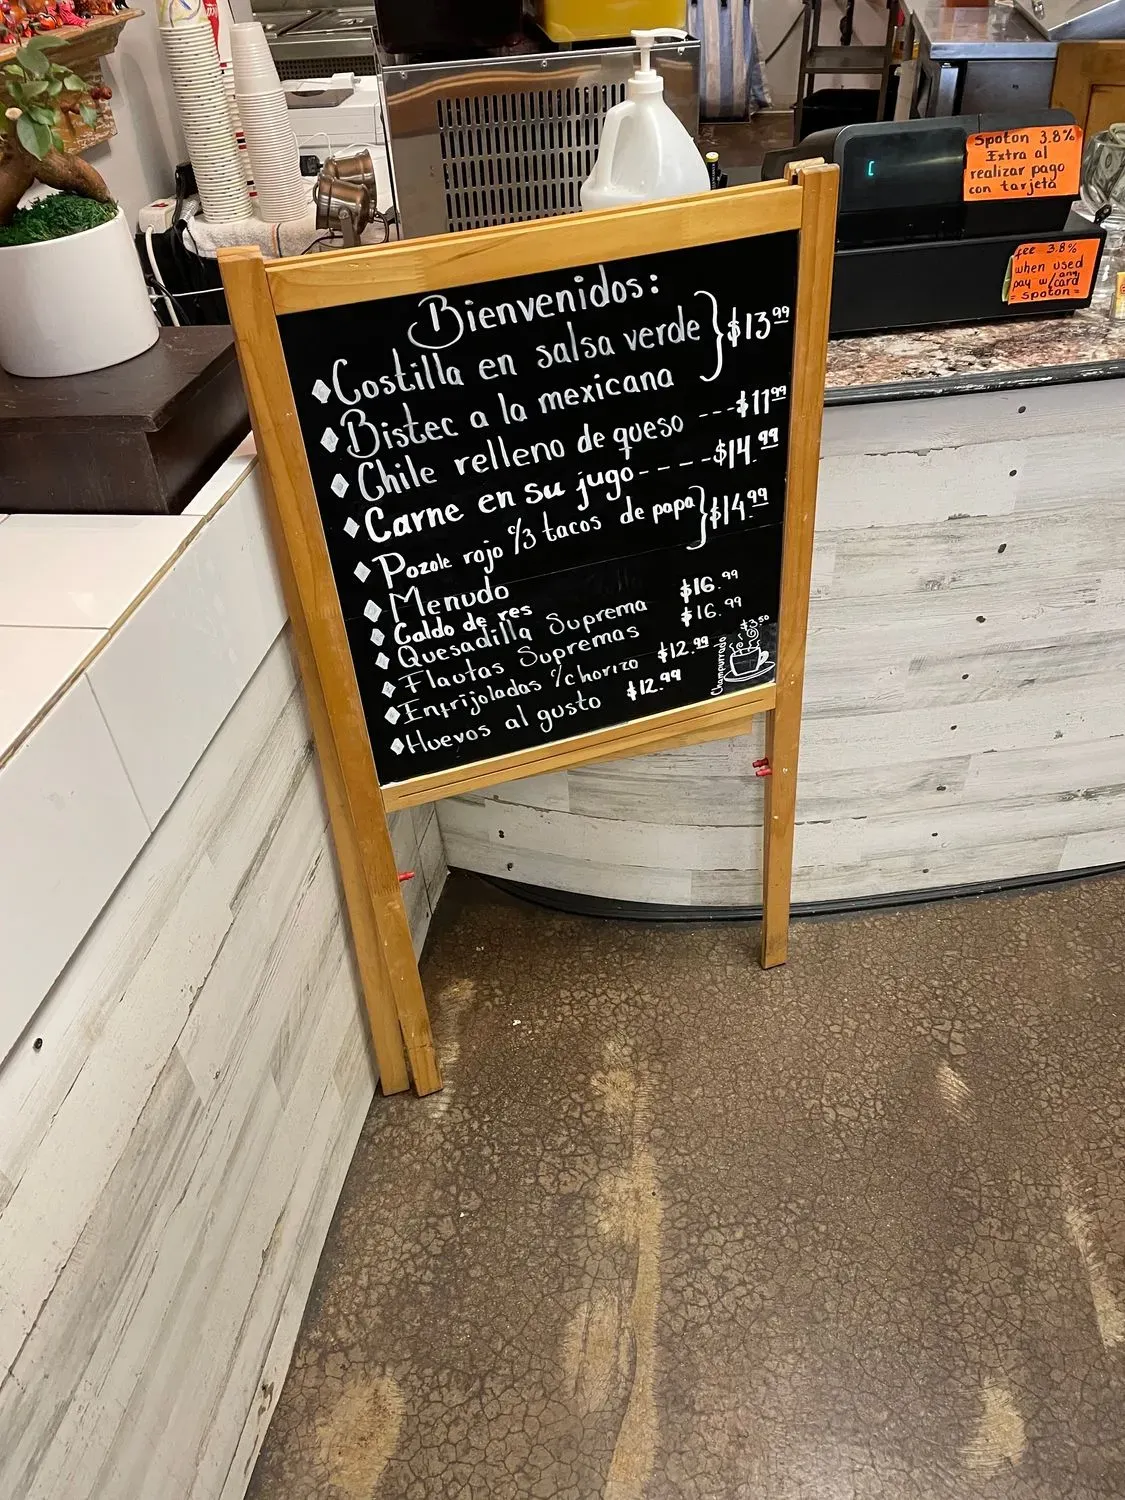 Bienvenidos:
Costilla en salsa verde } $13.99
Bistec a la mexicana
Chile relleno de queso --- $11.99
Carne en su jugo ---- $14.99
Pozole rojo c/3 tacos de papa } $14.99
Menudo
Caldo de res
Quesadilla Suprema $16.99
Flautas Supremas $16.99
Enfrijoladas c/chorizo $12.99
Huevos al gusto $12.99
Champurrado $3.50
Spoton 3.8%
Extra al
realizar pago
con tarjeta
fee 3.8%
when used
pay w/any card
= spoton =